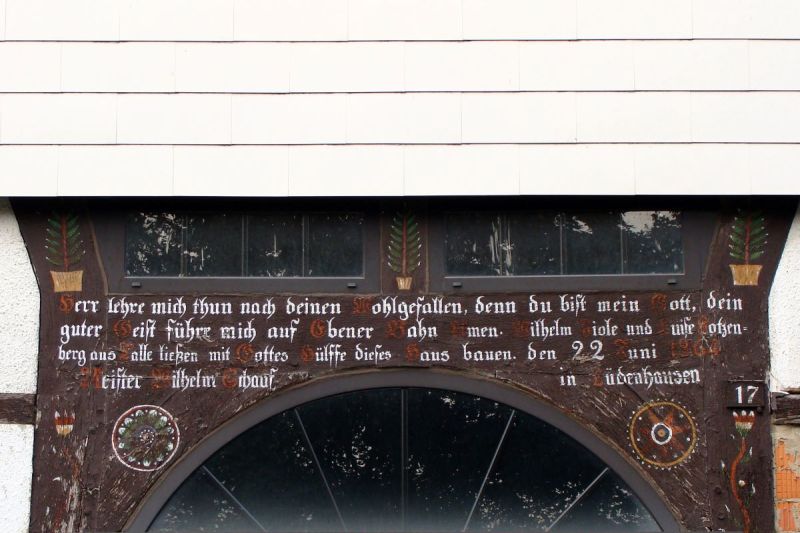 Herr lehre mich thun nach deinen Wohlgefallen, denn du bist mein Gott, dein
guter Geist führe mich auf Ebener Bahn Amen. Wilhelm Tiole und Luise Lotzen-
berg aus Talle ließen mit Gottes Hülffe dieses Haus bauen. den 22 Juni
Meister Wilhelm Schauf in Lüdenhausen
17